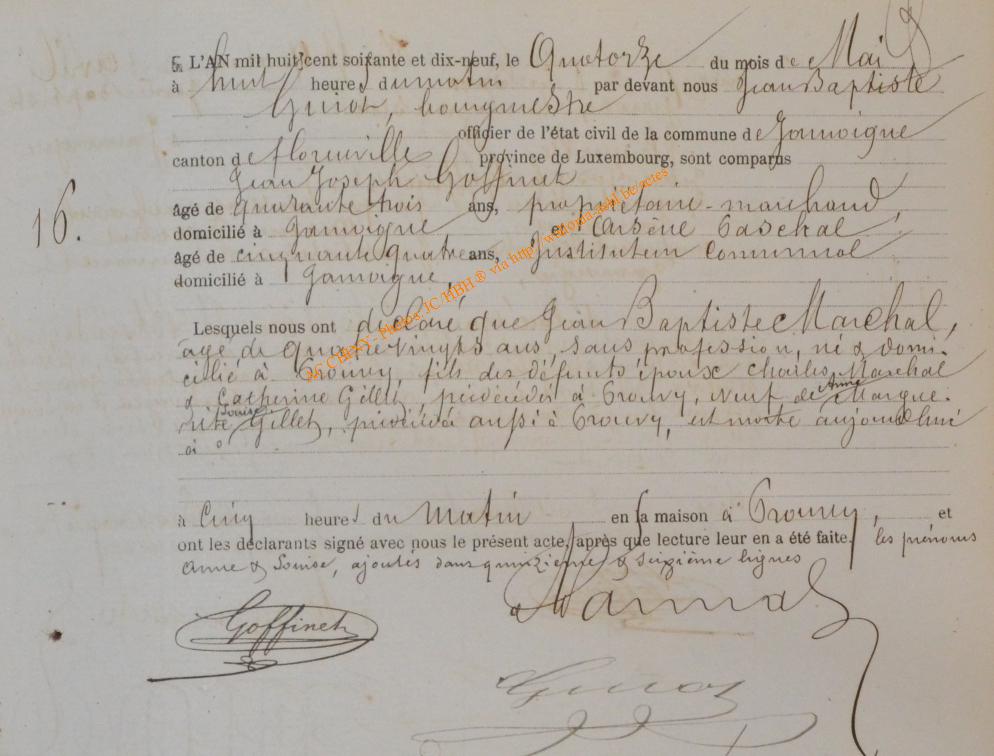 L'AN mil huit cent soixante et dix-neuf, le Quatorze du mois de Mai
à huit heures du matin par devant nous Jean Baptiste
bourgmestre
officier de l'état civil de la commune de Jamoigne
canton de florenville province de Luxembourg, sont comparus
Jean Joseph Goffinet
16.
âgé de quarante trois ans, propriétaire-marchand,
domicilié à Jamoigne et Arsène Paschal
âgé de cinquante quatre ans, Instituteur Communal
domicilié à Jamoigne,
Lesquels nous ont déclaré que Jean Baptiste Marchal,
âgé de quatre vingts ans, sans profession, né & domi-
cilié à Prouvy, fils des défunts époux Charles Marchal
& Catherine Gillet, prédécédés à Prouvy, veuf de Anne Margue-
rite Louise Gillet, prédécédée aussi à Prouvy, est morte aujourd'hui
à cinq heures du matin en sa maison à Prouvy, et
ont les déclarants signé avec nous le présent acte, après que lecture leur en a été faite. les prénoms
Anne & Louise, ajoutés dans quinzième & seizième lignes
Goffinet
© CHINY - Photos JC HBH ® via http://